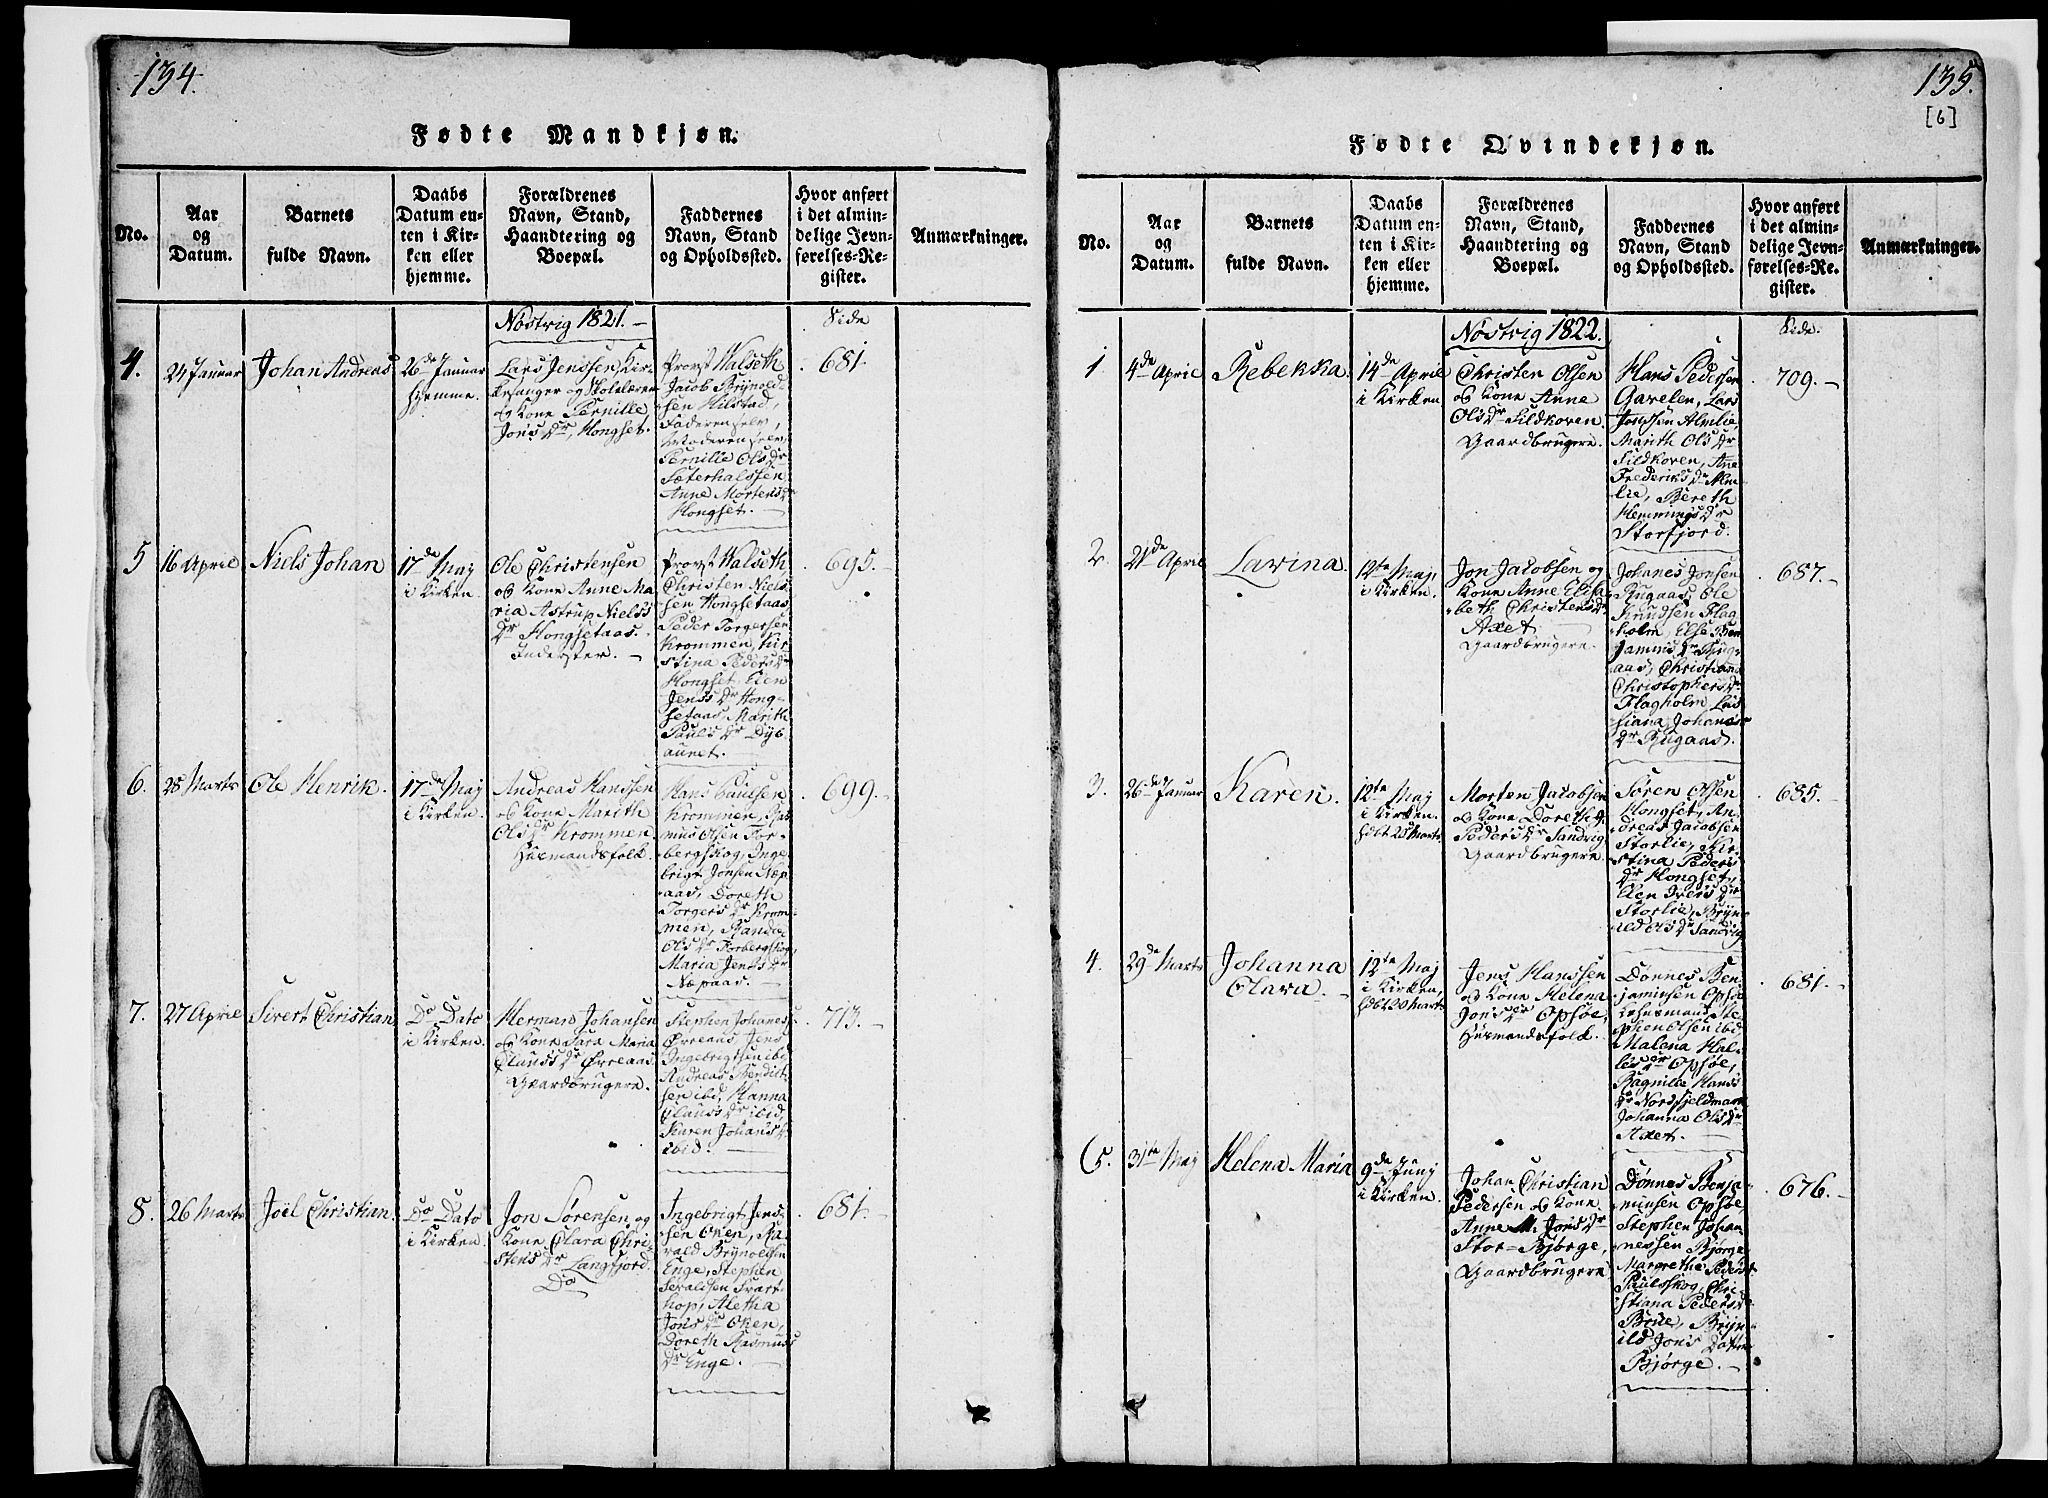 134.
Fødte Mandkjøn.
No.
Aar
og
Datum.
Barnets
fulde Navn.
Daabs
Datum en-
ten i Kir-
ken eller
hjemme.
Forældrenes
Navn, Stand,
Haandtering og
Boepæl.
Faddernes
Navn, Stand
og Opholdssted.
Hvor anført
i det almin-
delige Jevn-
førelses-Re-
gister.
Anmærkninger.
Nostvig 1821.
Side
4.
24 Januar
Johan Andreas
26de Januar
Hjemme.
Lars Jenssen, Kir-
kesanger og Skolelærer
og Kone Pernille
Jons Dr, Hongset.
Provst Walseth
Jacob Brynold-
sen Hilstad,
Faderen selv,
Moderen selv,
Pernille Ols Dr
Sæterhalssen
Anne Mortens Dr
Hongset.
681
5
16 April
Niels Johan
17de Maj
i Kirken.
Ole Christensen
og Kone Anne Ma
ria Astrup Niels
Dr Hongsetaas.
Inderster.
Provst Walseth
Christen Niels-
sen Hongsetaas
Peder Torgersen
Krommen, Kir
stina Peders Dr
Hongset, Elen
Jens Dr Hong-
setaas, Marith
Pauls Dr Dyb
aunet.
695.
6.
28 Marts
Ole Henrik.
17de Maj
i Kirken.
Andreas Hanssen
og Kone Marith
Ols Dr Krommen
Huusmandsfolk.
Hans Paulsen
Krommen, Ras
mus Olsen For-
bergskog, Inge
brigt Jonsen Næp
aas, Doreth
Torgers Dr Krom-
men, Randie
Ols Dr Forbergskog,
Maria Jens Dr
Næpaas.
699.
7.
27 April
Sivert Christian
Do Dato
i Kirken.
Herman Johansen
og Kone Sara Maria
Clauss Dr Ørreaas
Gaardbrugere.
Stephen Johans
Ørreaas, Jens
Ingebrigtsen ibd
Andreas Bendict
sen ibd, Hanna
Clauss Dr ibid,
Karen Johans Dr
ibid.
713.
8.
26 Marts
Joël Christian.
Do Dato
i Kirken.
Jon Sørensen og
Kone Clara Chri-
stens Dr Langfjord
Do
Ingebrigt Jens
sen Oxen, Ha
rald Brynoldsen
Enge, Stephen
Seraldsen Svart-
hop, Aletha
Jons Dr Oxen,
Doreth Rasmuss
Dr Enge.
681.
135.
[6]
Fødte Qvindekjøn.
No.
Aar
og
Datum.
Barnets
fulde Navn.
Daabs
Datum en-
ten i Kir-
ken eller
hjemme.
Forældrenes
Navn, Stand,
Haandtering og
Boepæl.
Faddernes
Navn, Stand
og Opholdssted.
Hvor anført
i det almin-
delige Jevn-
førelses-Re-
gister.
Anmærkninger.
Nostvig 1822.
Side.
1
4de April
Rebekka
14de April
i Kirken
Christen Olsen
og Kone Anne
Ols Dr Sildkoven.
Gaardbrugere.
Hans Pedersen
Garelen, Lars
Jonssen Almlie,
Marith Ols Dr
Sildkoven, Ane
Frederiks Dr Alm
lie, Bereth
Hemmings Dr
Storfjord.
709.
2.
21de April
Lavina.
12te Maj,
i Kirken.
Jon Jacobsen og
Kone Anne Elisa
beth Christens Dr
Axet
Gaardbrugere.
Johanes Jonsen
Rugaas Ole
Knudsen Flag
holm, Else Ben
jamins Dr Rug-
aas, Christiana
Christophers Dr
Flagholm, Lus
siana Johans
Dr Rugaas.
687.
3.
26de Januar
Karen.
12te Maj
i Kirken.
hdbt 25 Marts
Morten Jacobsen
og Kone Doreth
Peders Dr Sandvig
Gaardbrugere.
Søren Olsen
Hongset, An-
dreas Jacobsen
Storlie, Kir-
stina Peders
Dr Hongset,
Elen Ivers Dr
Storlie, Bryn-
ild Ols Dr Sandvig
685.
4.
29de Marts
Johanna
Clara.
12te Maj
i Kirken,
Jens Hanssen
og Kone Helena
Jons Dr Opsøe,
Huusmandsfolk.
Dønnes Ben-
jaminsen Opsøe
Huusmand Ste-
phen Olsen ibd
Malena Hal-
Dr Opsøe,
Ragnille Hans
Dr Nordfjeldmark
Johanna Ols Dr
Axet.
681.
5.
31te Maj
Helena Maria
9de Junj
i Kirken.
Johan Christian
Pedersen og Kone
Anne M. Jons Dr
Stor=Bjørge,
Gaardbrugere
Dønnes Benja
minsen Opsøe
Stephen Johan
nessen Bjørge
Margrethe Peders
Paulsskog, Chri-
stiana Peders Dr
Brue, Bryn-
ild Jons Datter
Bjørge.
676.